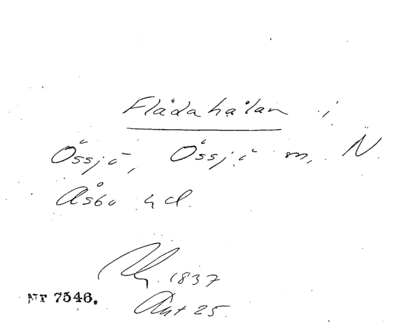 Flädahålan i
Össjö, Össjö m, N.
Åsbo hd.
1837
Ant 25.
Nr 7546.